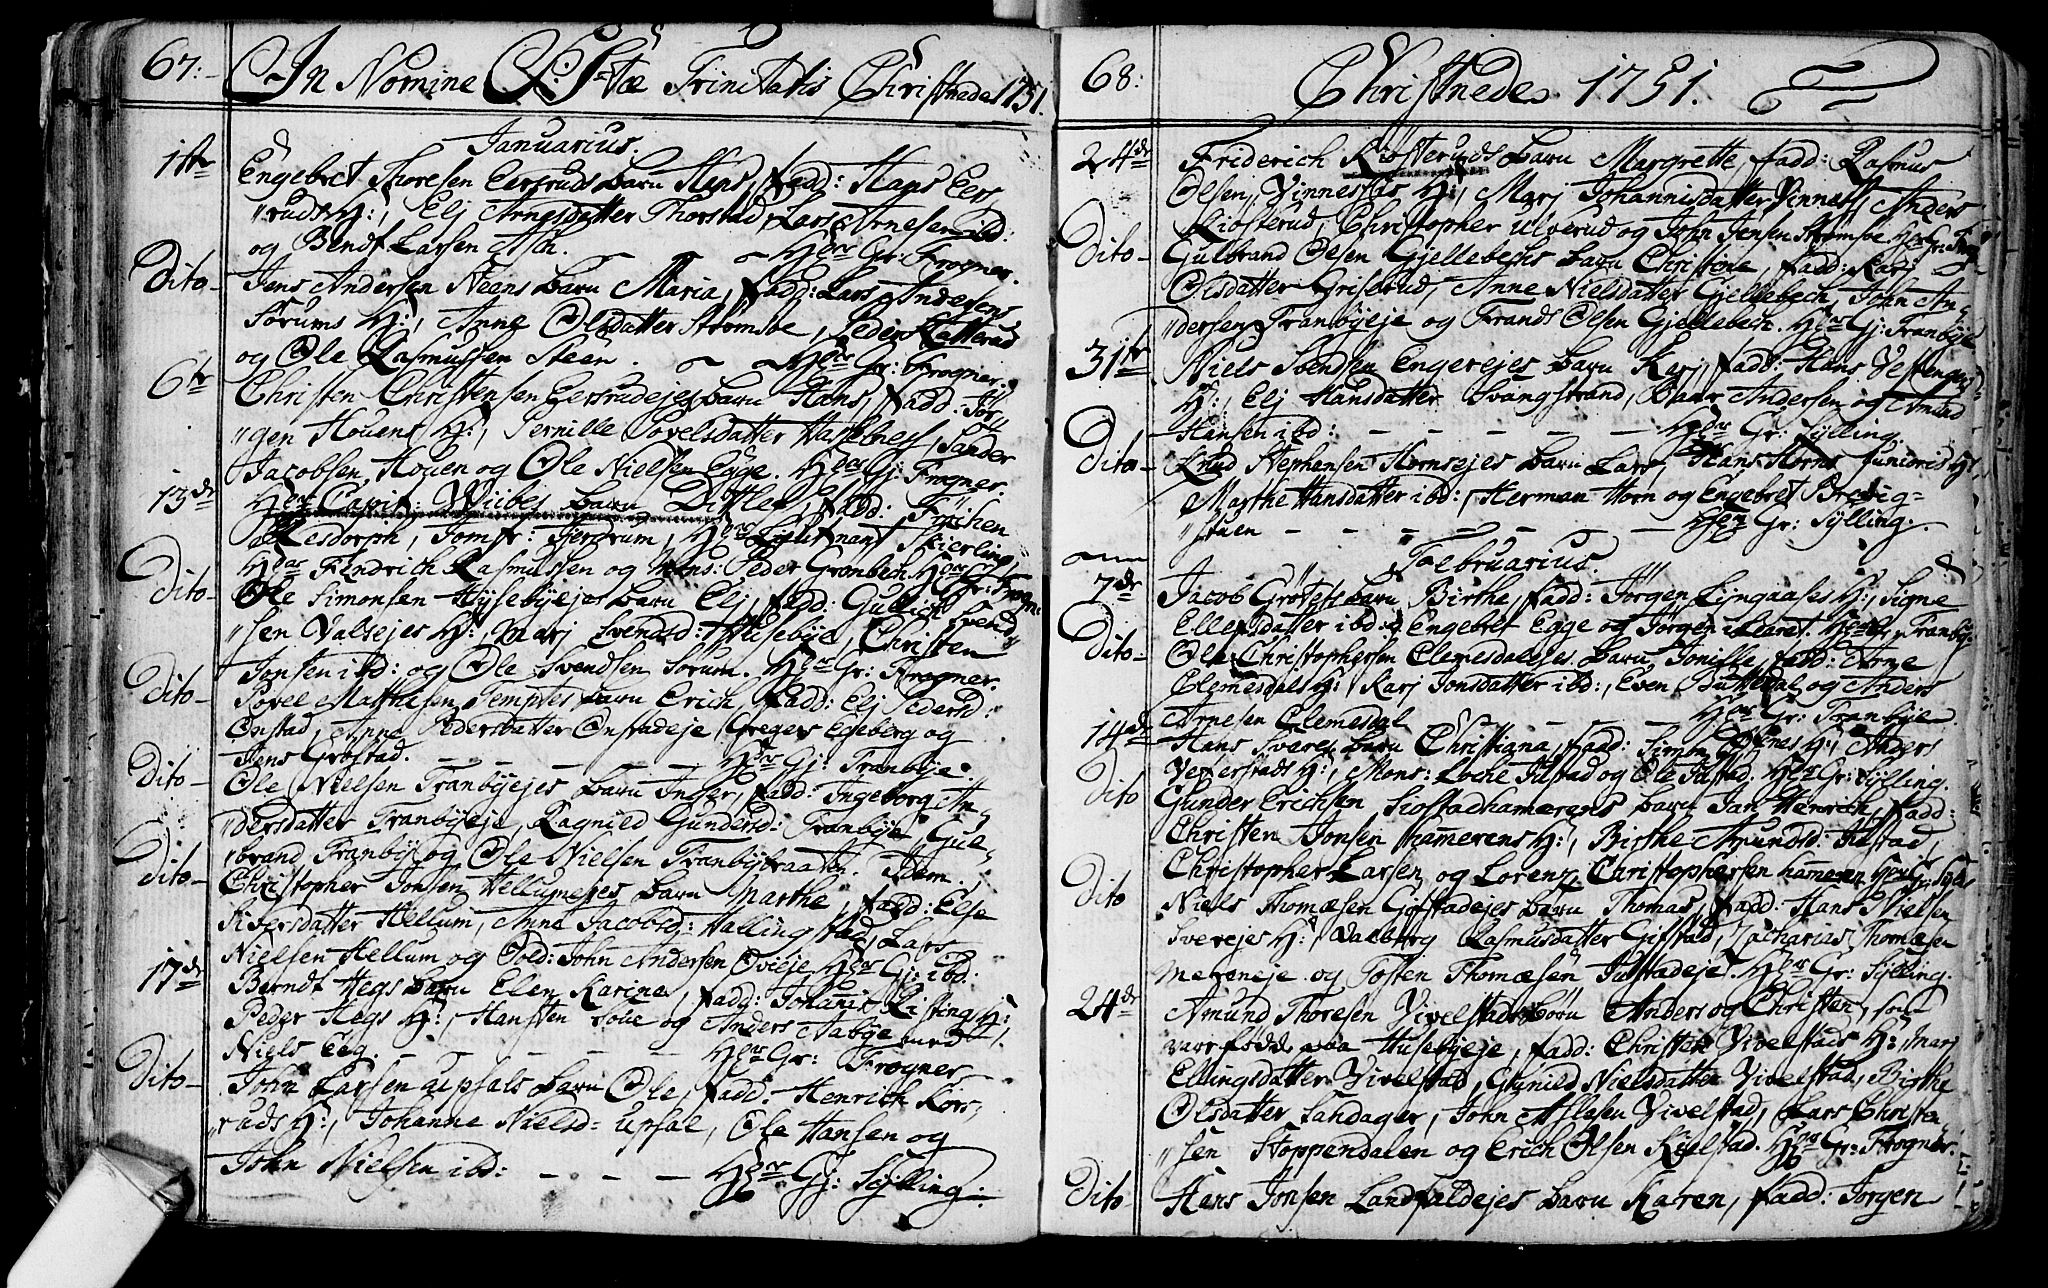 67.
In Nomine S: S: Tæ Trinitatis Christnede 1751.
Januarius.
1ste Engebret Thoresen Eersruds barn Hens, fadd: Hans Eers
"ruds H:, Elj Arnesdatter Thorstad, Lars Arnesen ibd:
og Bendt Larsen Ask. Hꝫer Gr: Frogner.
Dito Jens Andersen Neens barn Maria, fadd: Lars Andersens
Sørums H:, Anne Olsdatter Strømsøe, Peder
og Ole Rasmussen Steen. Hꝫer Gr: Frogner.
6te Christen Christensen Eersrudejes barn Hans, fadd: Jør
"gen Houens H:, Pernille Povelsdatter Hasselness, Sander
Jacobsen Houen og Ole Nielsen Egge. Hꝫer Gj: Frogner.
13de Hꝫer Capit: Wiibes barn Ditlef, fadd: Frichen
Resdorph, Jomfr: Fjerdrum, Hꝫer Lieutnant Skierling,
Hꝫer Fridrich Rasmussen og Mons: Peder Grønbech. Hꝫer Gr: Frogn:
Dito Ole Simonsen Hysebyejes barn Elj, fadd: Gullich Svend
"sen Valsejes H:, Marj Svensd: Husebye, Christen
Jonsen ibd: og Ole Svendsen Sørum. Hꝫer Gr: Frogner.
Dito Povel Mathisen Semptes barn Erich, fadd: Elj Pedersd:
Onstad, Anne Pedersdatter Onstadeje, Gregers Egeberg og
Jens Grøstad. Hꝫer Gj: Tranbye.
Dito Ole Nielsen Tranbyejes barn Inger, fadd: Ingeborg An
"dersdatter Tranbyeje, Ragnild Gundersd: Tranbye, Gul
"brand Tranby og Ole Nielsen Tranbybraaten. Idem.
Dito Christopher Jonsen Hellumejes barn Marthe, fadd: Else
Siversdatter Hellum, Anne Jacobsd: Hallingstad, Lars
Nielsen Hellum og Sold: John Andersen Ovieje. Hꝫer Gj: ibd:
17de Berndt Hegs barn Elen Karine, fadd: Johanis Risting H:
Peder Hegs H:, Hansten Toue og Anders Aabye med
Niels Eeg. Hꝫer Gr: Frogner
Dito John Larsen Upsals barn Ole, fadd: Henrich Kors
"ruds H:, Johanne Nielsd: Upsal, Ole Hansen og
John Nielsen ibd: Hꝫer Gj: Sylling.
68:
Christnede 1751.
24de Friderich Kiøsteruds barn Margrette, fadd: Rasmus
Olsen Vinnes H:, Marj Johannisdatter Vinnes, Anders
Kiøsterud, Christopher Ulverud og John Jensen Strømsøe. Hꝫer Gr: Frog
Dito Gulbrand Olsen Gjellebechs barn Christine, fadd: Karj
Olsdatter Griserud, Anne Nielsdatter Gjellebech, John An
"dersen Tranbyeje og Frands Olsen Gjellebech. Hꝫer Gj: Tranbye
31te Niels Svendsen Engerejes barn Karj, fadd: Hans Vesteng
H:, Elj Hansdatter Svangstrand, Baar Andersen og Amund
Hansen ibd: Hꝫer Gr: Sylling
Dito Knud Stephensen Hornsejes barn Lars, Hans Horns junioris H:
Marthe Hansdatter ibd:, Herman Horn og Engebret Bredig
"stuen Hꝫer Gr: Sylling.
Foebruarius.
7de Jacob Grøtets barn Birthe, fadd: Jørgen Lyngaases H:, Signe
Ellefsdatter ibd:, Engebret Egge og Jørgen Hꝫer Gr: Tranbye
Dito Ole Christophersen Clemesdalejes barn Jonille, fadd: Arne
Clemesdals H:, Karj Jonsdatter ibd:, Even Buttedal og Anders
Arnesen Clemesdal Hꝫer Gr: Tranbye.
14de Hans Svere barn Christiana, fadd: Simon H:, Anders
Veierstads H:, Mons: Loche Justad og Ole Justad. Hꝫer Gr: Sylling.
Dito Gunder Erichsen Giostadkamerens barn Jan Henrich, fadd:
Christen Jonsen Kamerens H:, Birthe Amundsd: Justad,
Christopher Larsen og Lorenz Christophersen Kameren Hꝫer Gr: Sylli
Dito Niels Thomæsen Gofstadejes barn Thomas, fadd: Hans Nielsen
Sverejes H:, Valborg Rasmusdatter Gifstad, Zacharias Thomæsen
Mereneje og Tosten Thomæsen Justadeje. Hꝫer Gr: Sylling.
24de Amund Thoresen Vivelstads børn Anders og Christen, som
vare fødde paa Husebyeje, fadd: Christen Vivelstads H:, Marj
Ellingsdatter Vivelstad, Gunild Nielsdatter Vivelstad, Birthe
Olsdatter Sandager, John Aslesen Vivelstad, Lars Christe
"sen Stoppendalen og Erich Olsen Kielstad. Hꝫer Gr: Frogner.
Dito Hans Jonsen Landfaldejes barn Karen, fadd: Jørgen